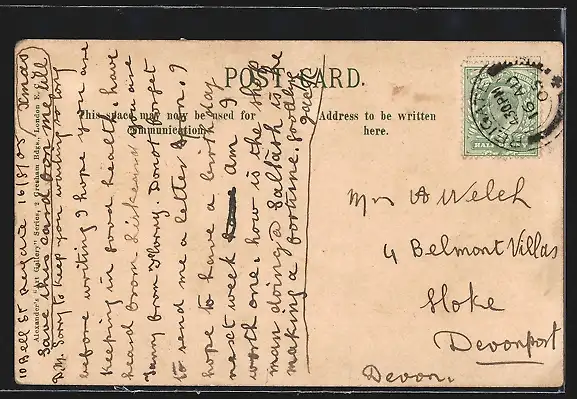 POST CARD.
This space may now be used for
Communication.
Address to be written
here.
Alexander's "Art Gallery" Series, 2 Gresham Bdgs., London E.C.
10 Bell St Reigate 16/8/05
Save this card for me till Xmas
D.M. Sorry to keep you waiting so long
before writing I hope you are
keeping in good health. I have
heard from Liskeard you are
Fanny from Florry. Do not forget
to send me a letter on. I
hope to have a birthday
next week am I
worth one. how is the shop
man doing @ Saltash is he
making a fortune. goodbye
Mrs A Welch
4 Belmont Villas
Stoke
Devonport
Devon.
REIGATE
4.30 PM
16 AU
05
HALFPENNY